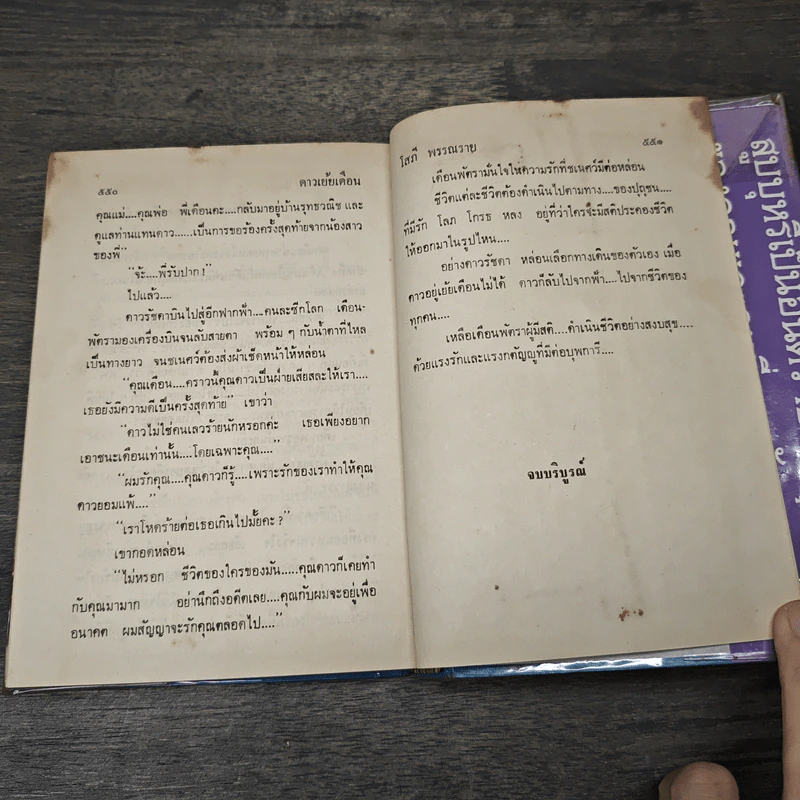 ๕๕๐ ดาวเย้ยเดือน
คุณแม่....คุณพ่อ พี่เดือนคะ....กลับมาอยู่บ้านรุทธวณิช และ
ดูแลท่านแทนดาว......เป็นการขอร้องครั้งสุดท้ายจากน้องสาว
ของพี่”
“จ้ะ....พี่รับปาก !”
ไปแล้ว....
ดาวรัชดาบินไปสู่อีกฟากฟ้า....คนละซีกโลก เดือน-
พัตรามองเครื่องบินจนลับสายตา พร้อม ๆ กับน้ำตาที่ไหล
เป็นทางยาว จนชเนศวร์ต้องส่งผ้าเช็ดหน้าให้หล่อน
“คุณเดือน....คราวนี้คุณดาวเป็นฝ่ายเสียสละให้เรา....
เธอยังมีความดีเป็นครั้งสุดท้าย” เขาว่า
“ดาวไม่ใช่คนเลวร้ายนักหรอกค่ะ เธอเพียงอยาก
เอาชนะเดือนเท่านั้น....โดยเฉพาะคุณ....”
“ผมรักคุณ....คุณดาวก็รู้....เพราะรักของเราทำให้คุณ
ดาวยอมแพ้....”
“เราโหดร้ายต่อเธอเกินไปมั้ยคะ ?”
เขากอดหล่อน
“ไม่หรอก ชีวิตของใครของมัน.....คุณดาวก็เคยทำ
กับคุณมามาก อย่านึกถึงอดีตเลย....คุณกับผมจะอยู่เพื่อ
อนาคต ผมสัญญาจะรักคุณตลอดไป....”
โสภี พรรณราย ๕๕๑
เดือนพัตรามั่นใจให้ความรักที่ชเนศวร์มีต่อหล่อน
ชีวิตแต่ละชีวิตต้องดำเนินไปตามทาง....ของปุถุชน....
ที่มีรัก โลภ โกรธ หลง อยู่ที่ว่าใครจะมีสติประคองชีวิต
ให้ออกมาในรูปไหน....
อย่างดาวรัชดา หล่อนเลือกทางเดินของตัวเอง เมื่อ
ดาวอยู่เย้ยเดือนไม่ได้ ดาวก็ลับไปจากฟ้า....ไปจากชีวิตของ
ทุกคน....
เหลือเดือนพัตราผู้มีสติ.....ดำเนินชีวิตอย่างสงบสุข....
ด้วยแรงรักและแรงกตัญญูที่มีต่อบุพการี....
จบบริบูรณ์